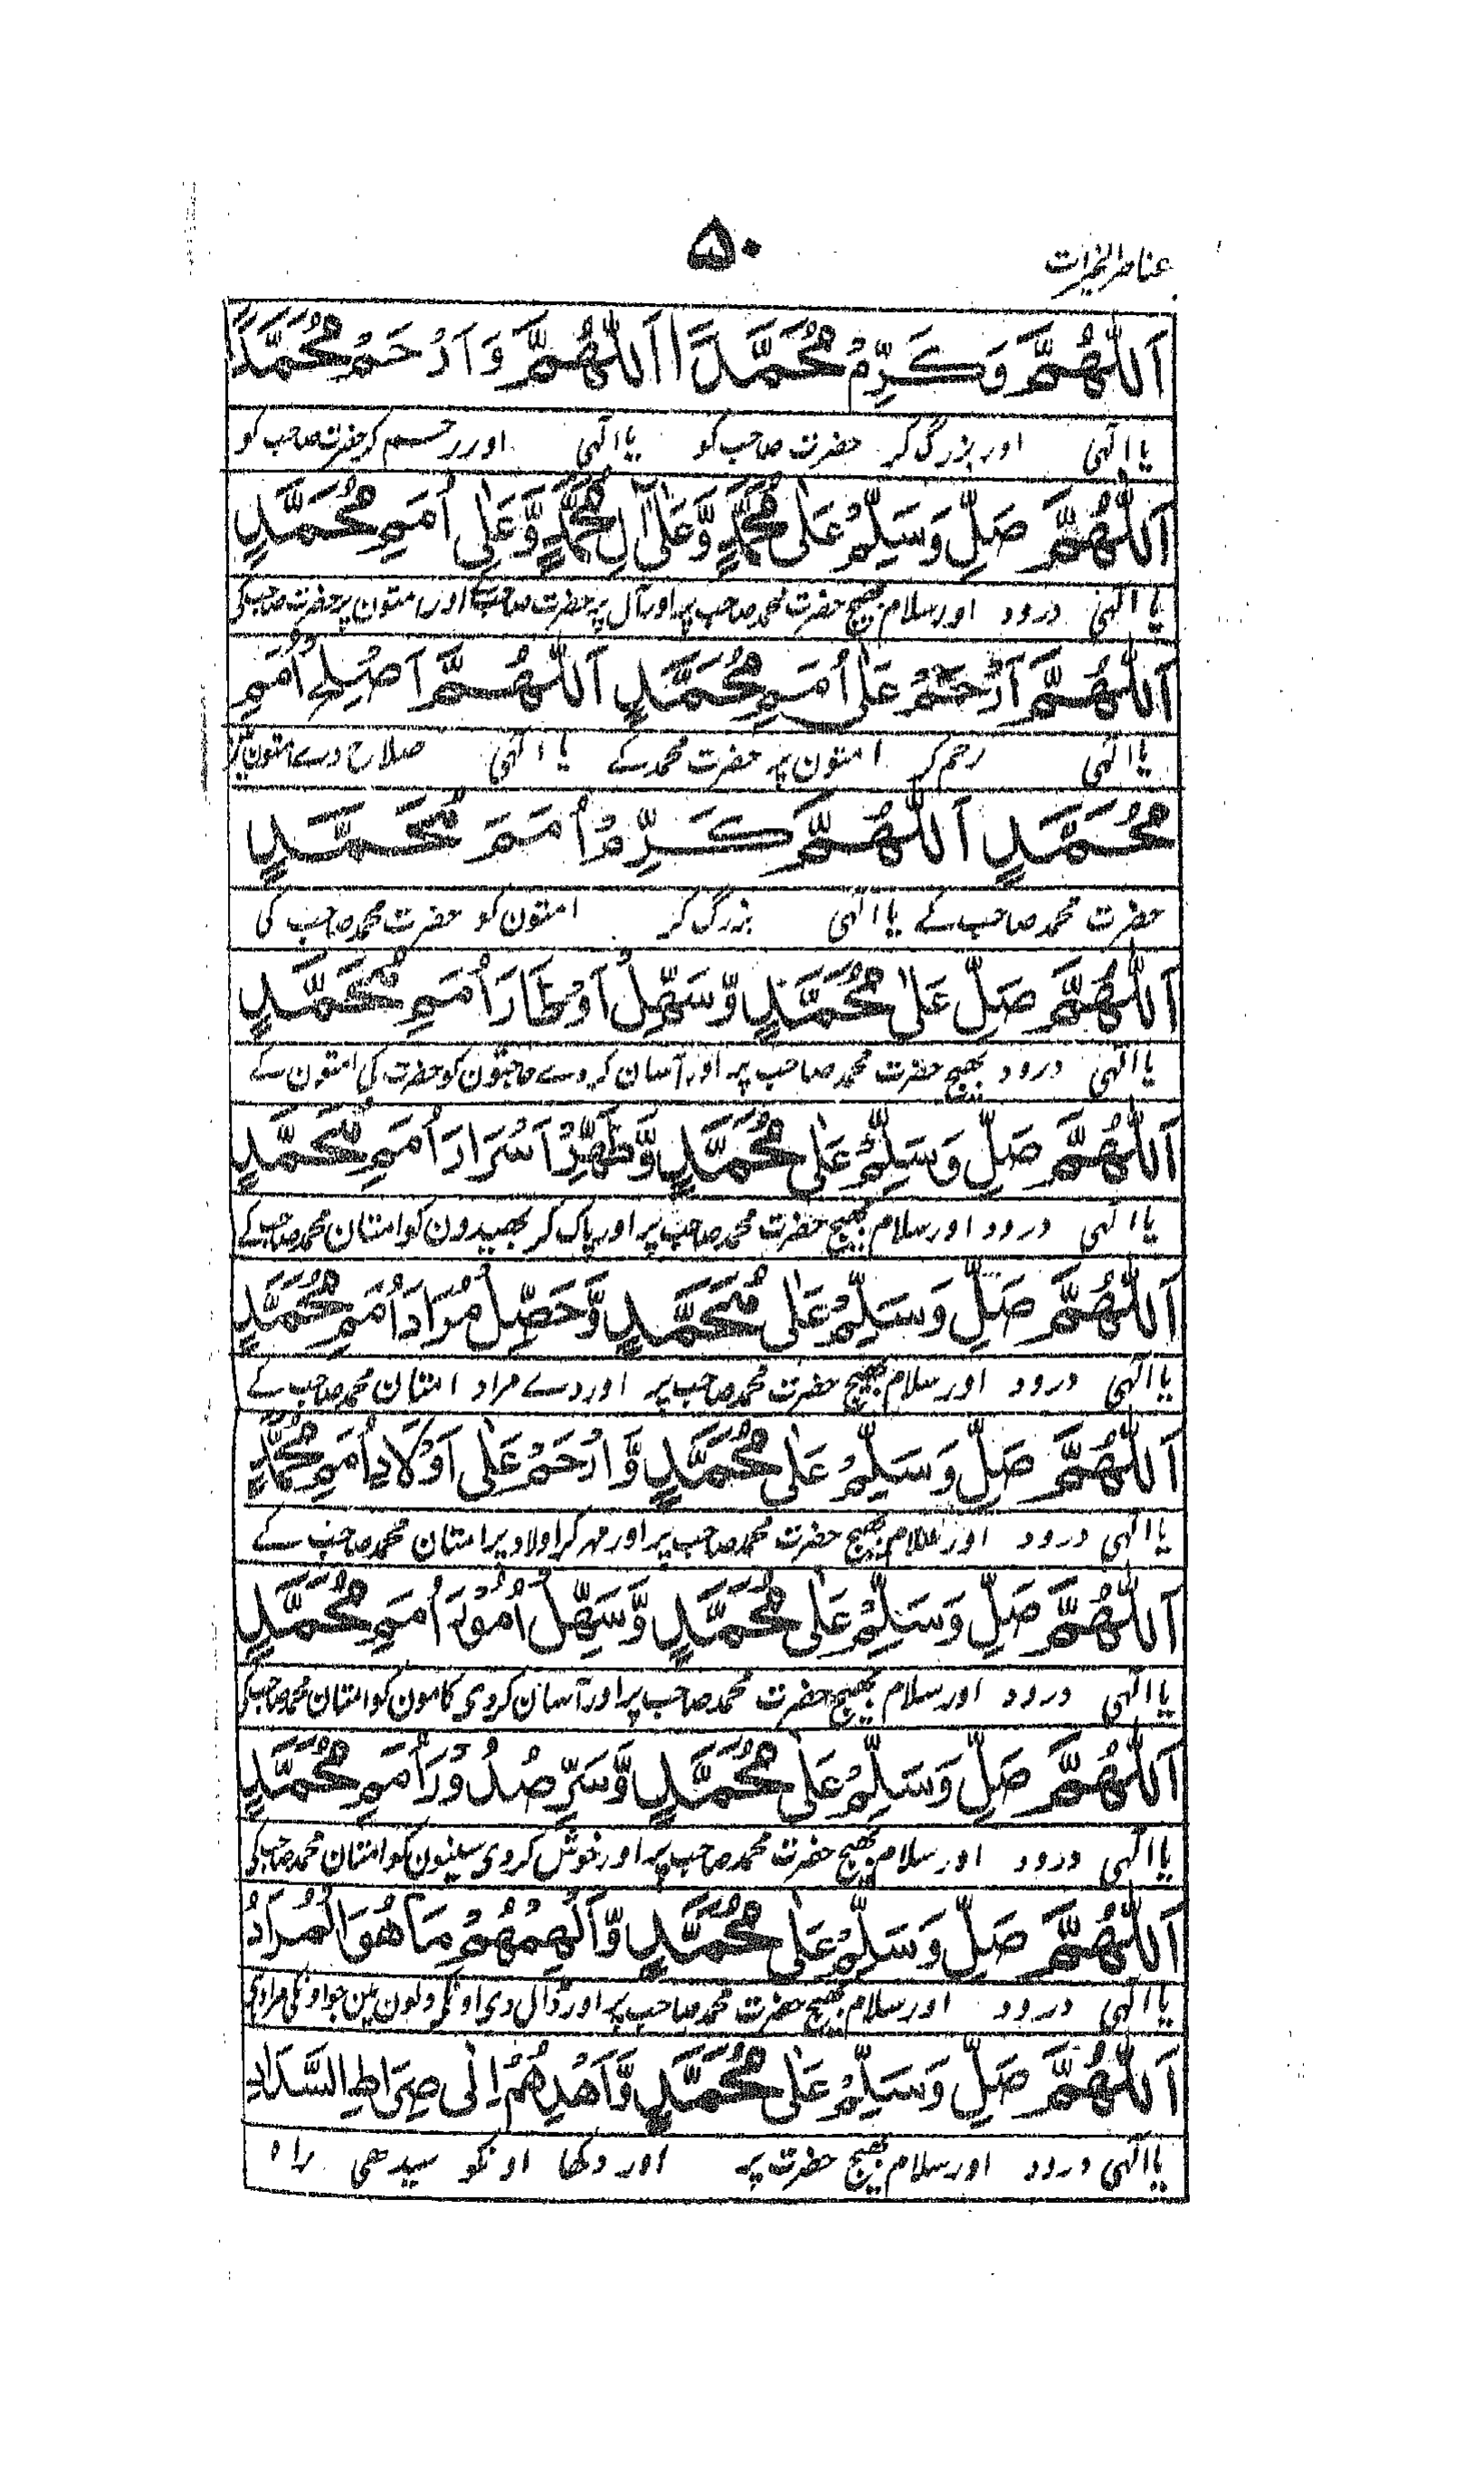 عناصر الخیرات
۵۰
اَللّٰهُمَّ وَكَرِّمْ مُحَمَّدًا اَللّٰهُمَّ وَارْحَمْ مُحَمَّدًا
یا الٰہی اور بزرگ کر حضرت صاحب کو یا الٰہی اور رحم کر حضرت صاحب کو
اَللّٰهُمَّ صَلِّ وَسَلِّمْ عَلٰى مُحَمَّدٍ وَّعَلٰى اٰلِ مُحَمَّدٍ وَّعَلٰى اُمَمِ مُحَمَّدٍ
یا الٰہی درود اور سلام بھیج حضرت محمد صاحب پر اور آل پر حضرت صاحب کے اور امتون پر حضرت صاحب کی
اَللّٰهُمَّ اَرْحَمْ عَلٰى اُمَمِ مُحَمَّدٍ اَللّٰهُمَّ اَصْلِحْ اُمَمِ
یا الٰہی رحم کر امتون پر حضرت محمد کے یا الٰہی صلاح دے امتون
مُحَمَّدٍ اَللّٰهُمَّ كَرِّمْ اُمَمَ مُحَمَّدٍ
حضرت محمد صاحب کے یا الٰہی بزرگ کر امتون کو حضرت محمد صاحب کی
اَللّٰهُمَّ صَلِّ عَلٰى مُحَمَّدٍ وَّسَهِّلْ اَوْطَارَ اُمَمِ مُحَمَّدٍ
یا الٰہی درود بھیج حضرت محمد صاحب پر اور آسان کر دے حاجتون کو حضرت کی امتون کے
اَللّٰهُمَّ صَلِّ وَسَلِّمْ عَلٰى مُحَمَّدٍ وَّطَهِّرْ اَسْرَارَ اُمَمِ مُحَمَّدٍ
یا الٰہی درود اور سلام بھیج حضرت محمد صاحب پر اور پاک کر بھیدون کو امتان محمد صاحب کے
اَللّٰهُمَّ صَلِّ وَسَلِّمْ عَلٰى مُحَمَّدٍ وَّحَصِّلْ مُرَادَ اُمَمِ مُحَمَّدٍ
یا الٰہی درود اور سلام بھیج حضرت محمد صاحب پر اور دے مراد امتان محمد صاحب کے
اَللّٰهُمَّ صَلِّ وَسَلِّمْ عَلٰى مُحَمَّدٍ وَّارْحَمْ عَلٰى اَوْلَادِ اُمَمِ مُحَمَّدٍ
یا الٰہی درود اور سلام بھیج حضرت محمد صاحب پر اور مہر کر اولاد پر امتان محمد صاحب کے
اَللّٰهُمَّ صَلِّ وَسَلِّمْ عَلٰى مُحَمَّدٍ وَّسَهِّلْ اُمُوْرَ اُمَمِ مُحَمَّدٍ
یا الٰہی درود اور سلام بھیج حضرت محمد صاحب پر اور آسان کر دی کامون کو امتان محمد صاحب کی
اَللّٰهُمَّ صَلِّ وَسَلِّمْ عَلٰى مُحَمَّدٍ وَّسَرِّ صُدُوْرَ اُمَمِ مُحَمَّدٍ
یا الٰہی درود اور سلام بھیج حضرت محمد صاحب پر اور خوش کر دی سینون کو امتان محمد صاحب کی
اَللّٰهُمَّ صَلِّ وَسَلِّمْ عَلٰى مُحَمَّدٍ وَّاَلْهِمْهُمْ مَا هُوَ الْمُرَادُ
یا الٰہی درود اور سلام بھیج حضرت محمد صاحب پر اور ڈال دی اونکی دلون مین جو اونکی مراد ہی
اَللّٰهُمَّ صَلِّ وَسَلِّمْ عَلٰى مُحَمَّدٍ وَّاَهْدِهُمْ اِلٰى صِرَاطِ السَّدَادِ
یا الٰہی درود اور سلام بھیج حضرت پر اور دکھا اونکو سیدھی راہ